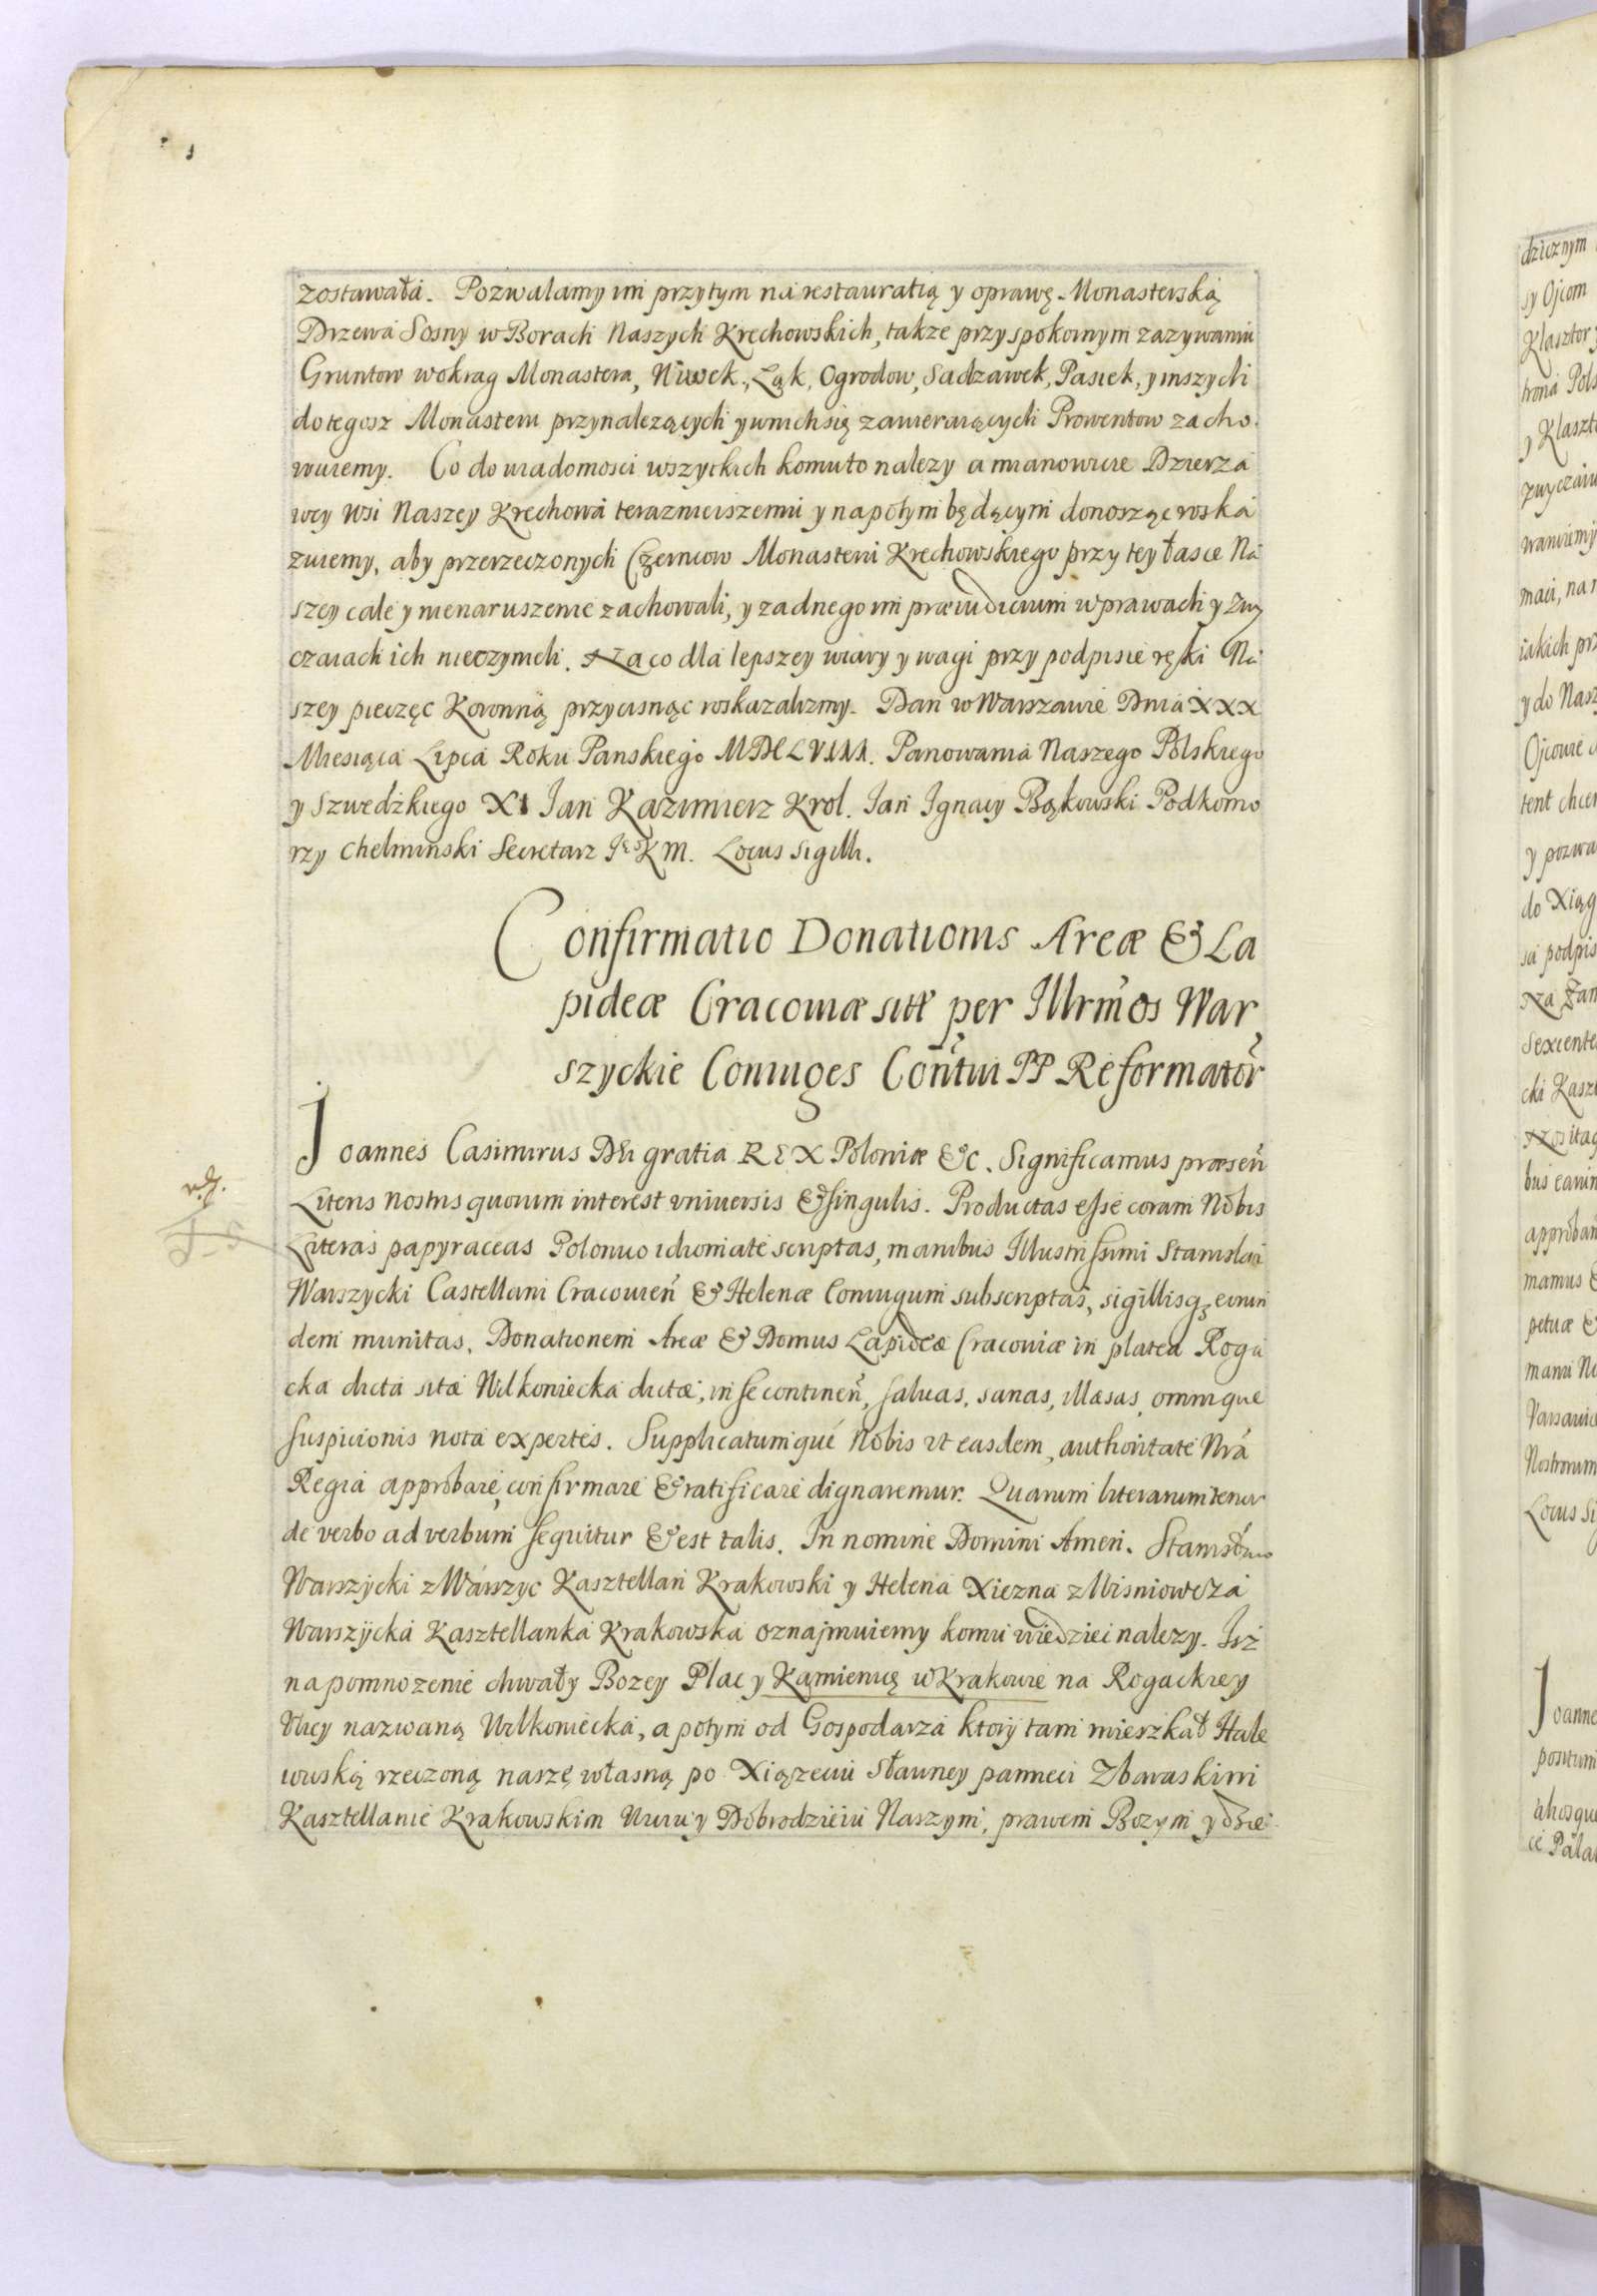 zostawała. Pozwalamy im przytym na restauratią y oprawę Monasterską
Drzewa Sosny w Borach Naszych Krechowskich, takze przy spokoinym zazywaniu
Gruntow wokrag Monastera, Niwek, Ląk, Ogrodow, Sadzawek, Pasiek, y inszych
do tegosz Monasteru przynalezących y wnich się zawieraiących Prowentow zacho
wuiemy. Co do wiadomosci wszystkich komu to nalezy a mianowicie Dzierza
wcy Wsi Naszey Krechowa teraznieiszemu y napotym będącym donosząc roska
zuiemy, aby przerzeczonych Czerncow Monasteru Krechowskiego przy tey łasce Na
szey cale y nienaruszenie zachowali, y zadnego im præiudicium w prawach y zwy
czaiach ich nieczyneli. Na co dla lepszey wiary y wagi przy podpisie ręki Na
szey pieczęc Koronną przycisnąc roskazalizmy. Dan w Warszawie Dnia XXX
Miesiąca Lipca Roku Panskiego MDCLVIII. Panowania Naszego Polskiego
y Szwedzkiego XI Jan Kazimierz Krol. Jan Ignacy Bąkowski Podkomo
rzy Chelminski Secretarz JKM. Locus Sigilli.
Confirmatio Donationis Areæ & La
pideæ Cracoviæ sitæ per Illrmos War
szyckie Coniuges Contui PP Reformator
Joannes Casimirus Dei gratia REX Poloniæ &c. Significamus præsen
Literis nostris quorum interest vniuersis & singulis. Productas esse coram Nobis
Literas papyraceas Polonico idiomate scriptas, manibus Illustrissimi Stanislai
Warszycki Castellani Cracouien & Helenæ Coniugum subscriptas, sigillisq eorun
dem munitas, Donationem Areæ & Domus Lapideæ Cracouiæ in platea Roga
cka dicta sitæ Wilkoniecka dictæ, in se continen, saluas, sanas, illæsas, omnique
suspicionis nota expertes. Supplicatumque Nobis vt easdem, authoritate Nra
Regia approbare, confirmare & ratificare dignaremur. Quarum literarum tenor
de verbo ad verbum sequitur & est talis. In nomine Domini Amen. Stanisław
Warszycki z Warszyc Kasztellan Krakowski y Helena Xiezna z Wisniowcza
Warszycka Kasztellanka Krakowska oznajmuiemy komu wiedziec nalezy. Isz
na pomnozenie chwały Bozey Plac y Kamienicę w Krakowie na Rogackiey
Vlicy nazwaną Wilkoniecka, a potym od Gospodarza ktory tam mieszkał Hale
wiuską rzeczoną naszę własną po Xiązeciu Sławney pamieci Zbaraskim
Kasztellanie Krakowskim Wuiu y Dobrodzieiu Naszym, prawem Bozym y dzie